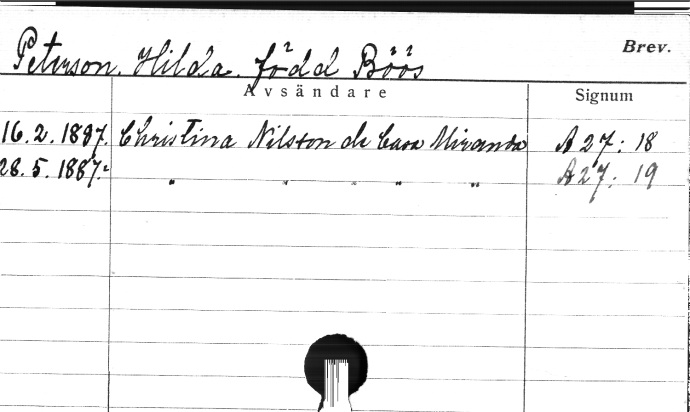 Peterson, Hilda, född Böös
Brev.
Avsändare
Signum
16.2.1887. Christina Nilsson de Casa Miranda A 27: 18
28.5.1887.- " " " " " A 27: 19